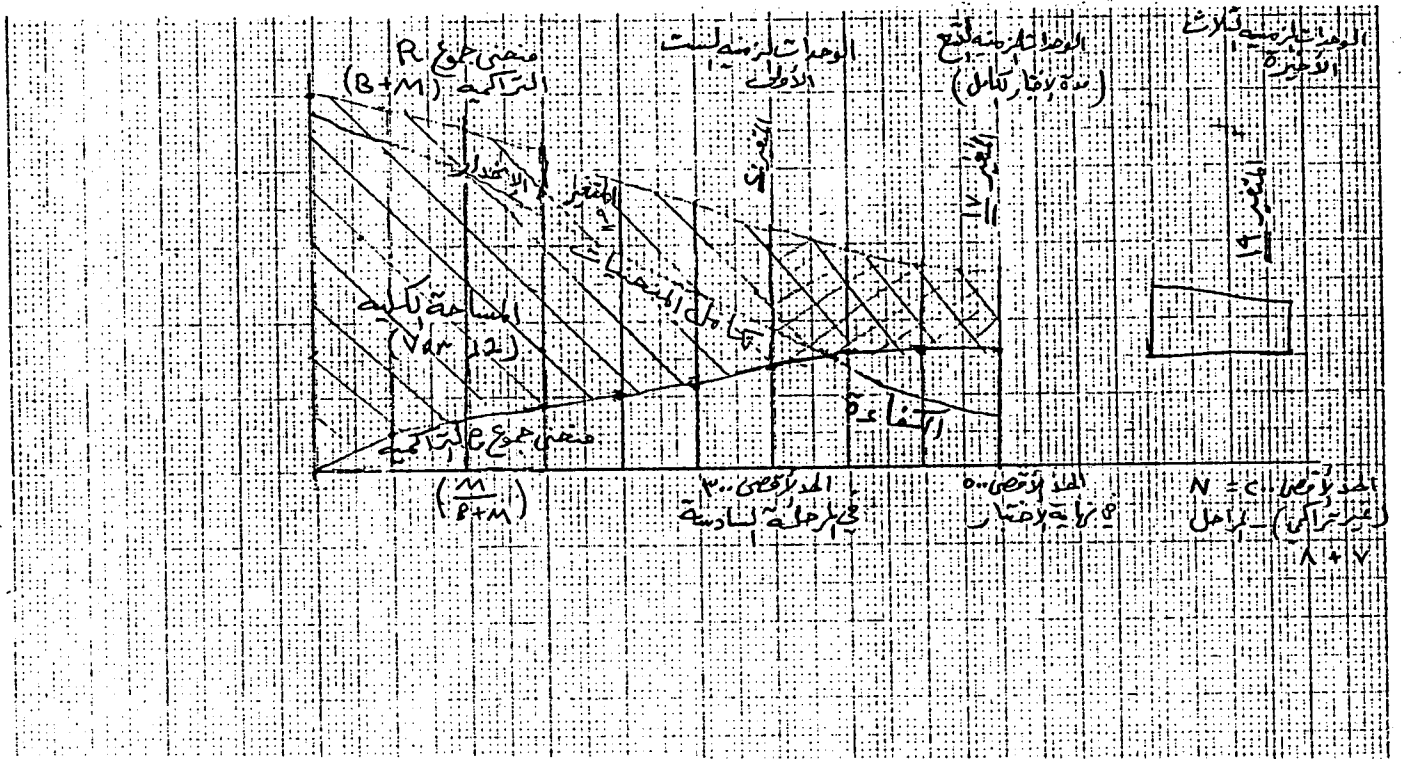 منحنى جموع R
التراكمية (B+M)
الوحدات الزمنيه الست
الأولى
الوحدات الزمنيه التسع
(مدة الاختبار ككل)
الوحدات الزمنيه الثلاث
الأخيرة
المتغير
المتغير ١٧
المتغير ١٩
الانحدار
المتغير
تكامل المنحنيات
المساحة الكليه
الكفاءة
منحنى جموع e التراكمية
(M / B+M)
الحد الأقصى ٣٠٠
في المرحلة السادسة
الحد الأقصى ٥٠٠
في نهاية الاختبار
الحد الأقصى ٢٠٠ = N
(غير تراكمي) - المراحل
٧ + ٨